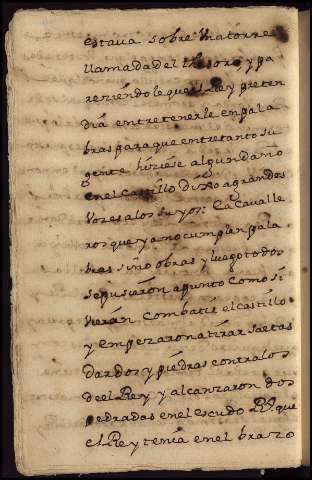 estaua sobre vna torre
llamada del thesoro, y pa
reziéndole que el Rey preten
día entretenerle en pala
bras para que entretanto su
gente hiziese algun daño
en el castillo dixo a grandes
vozes a los suyos: Ea Cavalle
ros que ya no cumplen pala
bras sino obras y luego todos
se pusierón a punto como si
vierán combatir el castillo
y empezaron a tirar saetas
dardos y piedras contra los
del Rey y alcanzaron dos
pedradas en el escudo Rl. que
el Rey tenía en el brazo